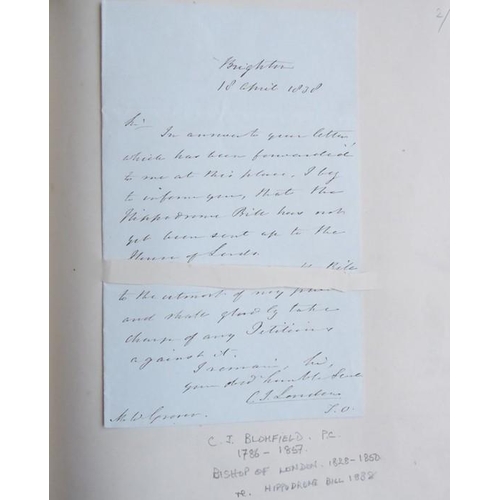 2/
Brighton
18 April 1838
Sir In answer to your letter,
which has been forwarded
to me at this place, I beg
to inform you, that the
Hippodrome Bill has not
yet been sent up to the
House of Lords.
Bill
to the utmost of my power
and shall gladly take
charge of any Petitions
against it.
I remain, Sir,
your obed humble Serv
C J London
Mr W.
C. J. BLOMFIELD. P.C.
1786 - 1857.
BISHOP OF LONDON. 1828-1850
re. HIPPODROME BILL 1838